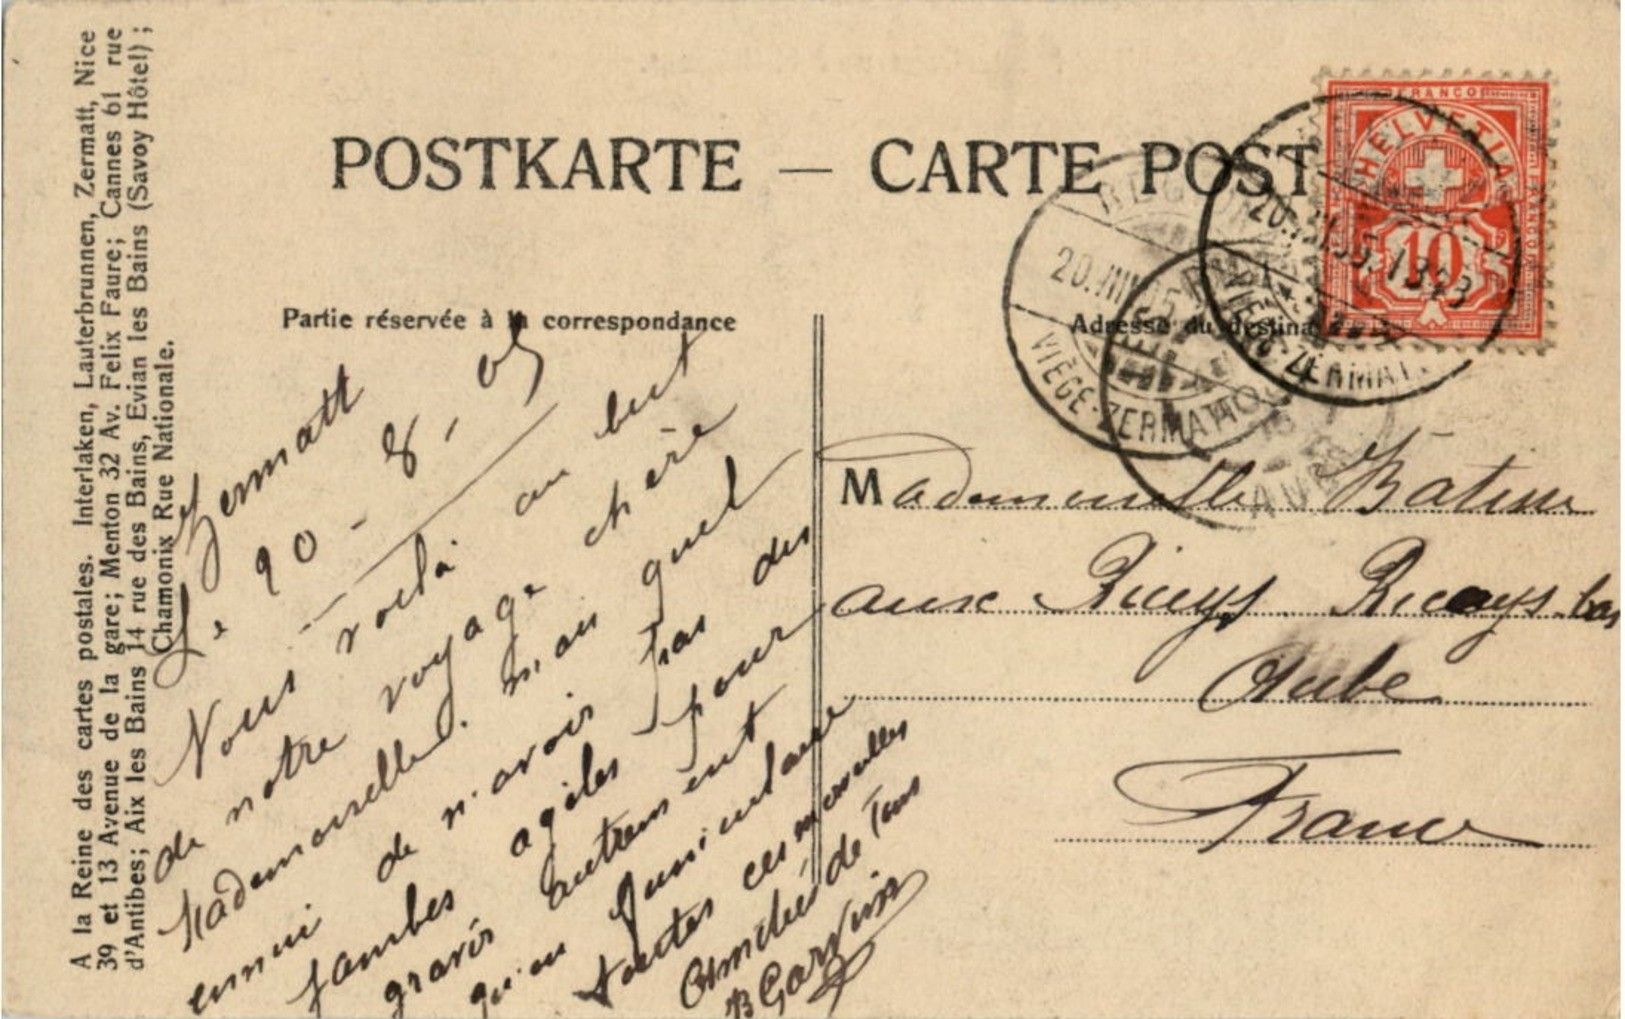 A la Reine des cartes postales. Interlaken, Lauterbrunnen, Zermatt, Nice
39 et 13 Avenue de la gare; Menton 32 Av. Felix Faure; Cannes 61 rue
d'Antibes; Aix les Bains 14 rue des Bains, Evian les Bains (Savoy Hôtel);
Chamonix Rue Nationale.
POSTKARTE — CARTE POST
Partie réservée à la correspondance
Adresse du destina
FRANCO
HELVETIA
10
20.VIII.05
VIÈGE-ZERMATT
20.VIII.05.1323
ZERMAT
AUBE
Zermatt
Le 20-8-05
Nous voilà au but
de notre voyage chère
Mademoiselle. mais quel
ennui de n'avoir pas des
jambes agiles pour
gravir autrement
qu'en funiculaire
toutes ces merveilles
Amitié de Tous
B Garnier
Mademoiselle Batisse
aux Riceys. Riceys-bas
Aube
France